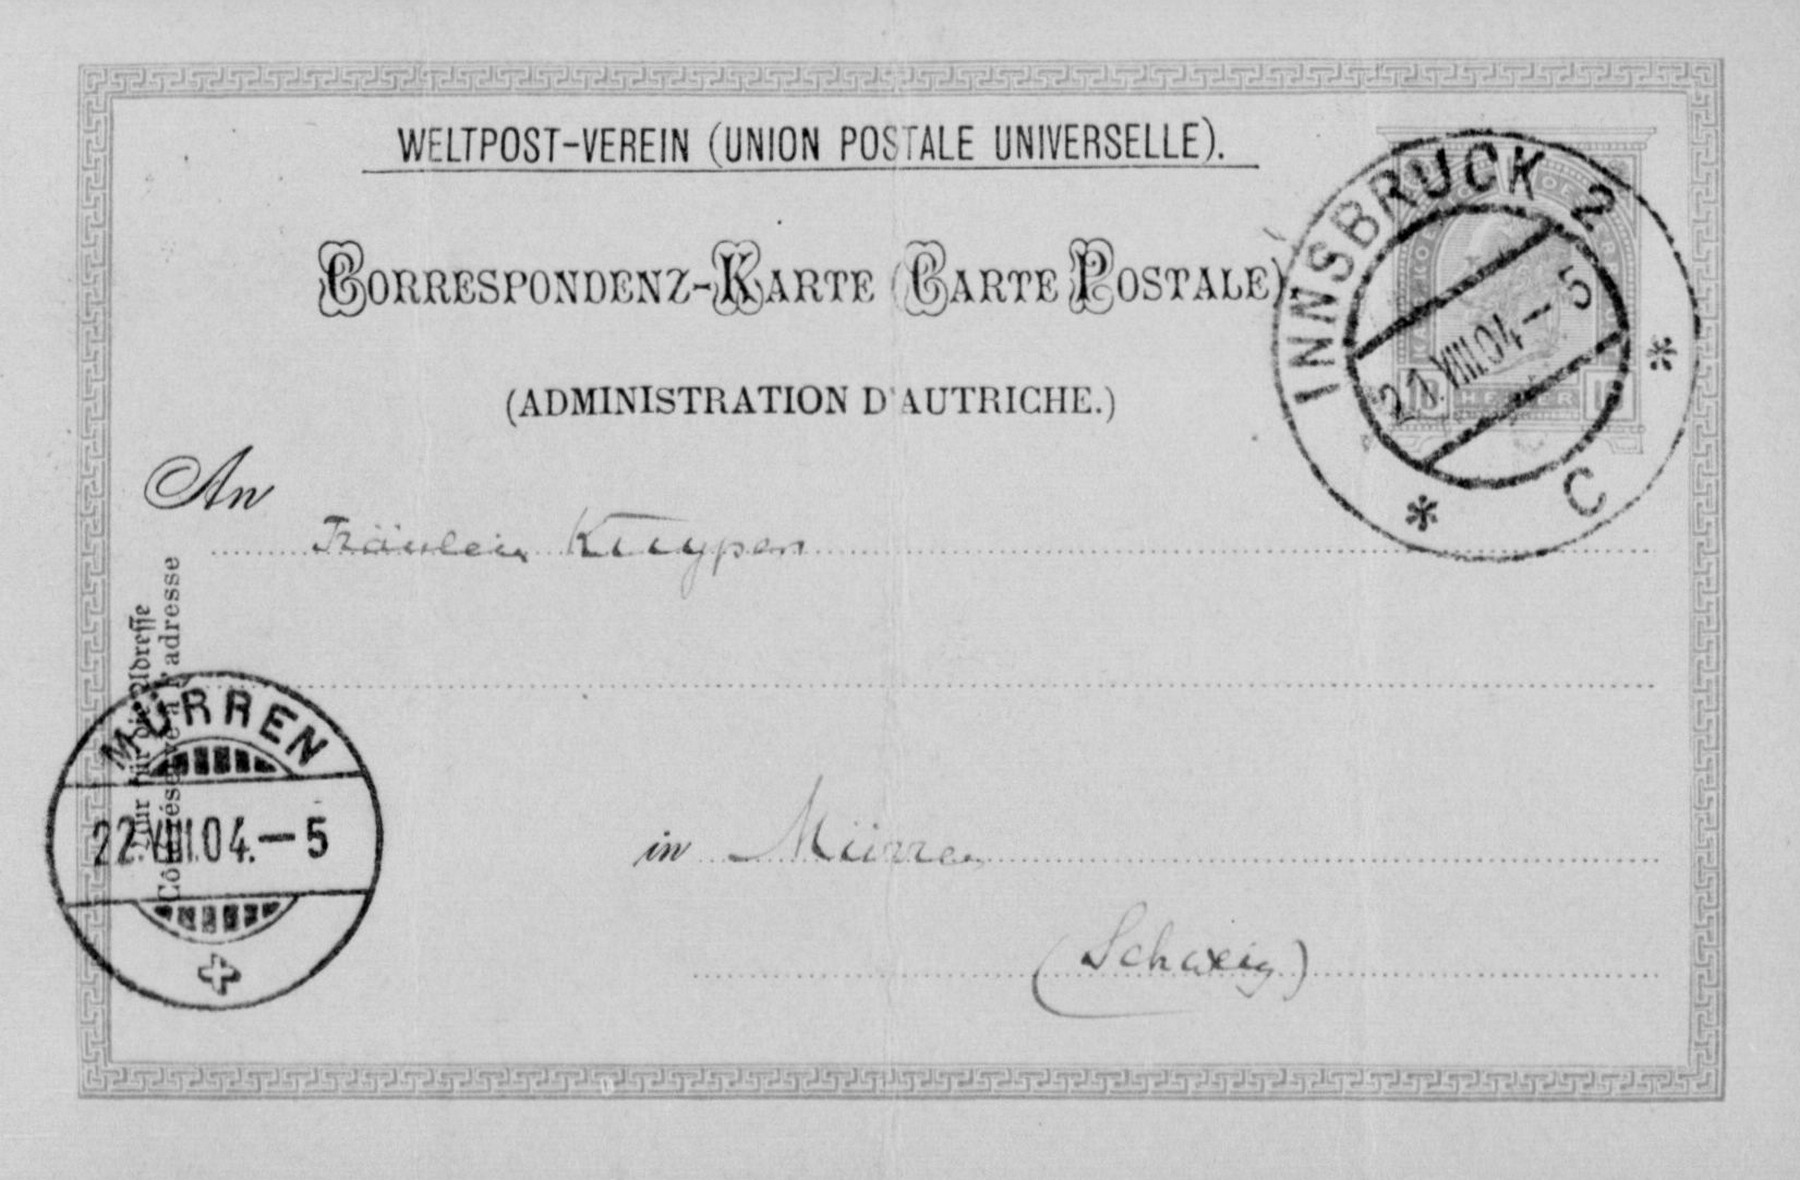 WELTPOST-VEREIN (UNION POSTALE UNIVERSELLE).
CORRESPONDENZ-KARTE (CARTE POSTALE)
(ADMINISTRATION D'AUTRICHE.)
INNSBRUCK 2
21.VIII.04-5
* C *
HELLER
An
Fräulein Kuyper
Nur für die Adresse
Côté réservé à l'adresse
MÜRREN
22.VIII.04.-5
in Mürren
(Schweiz)